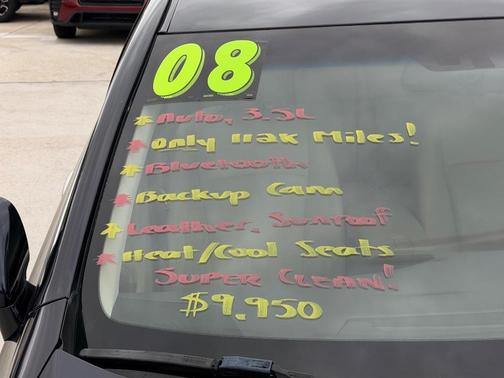 08
* Auto, 3.5L
* Only 112K Miles!
* Bluetooth
* Backup Cam
* Leather, Sunroof
* Heat/Cool Seats
Super Clean!
$9,950